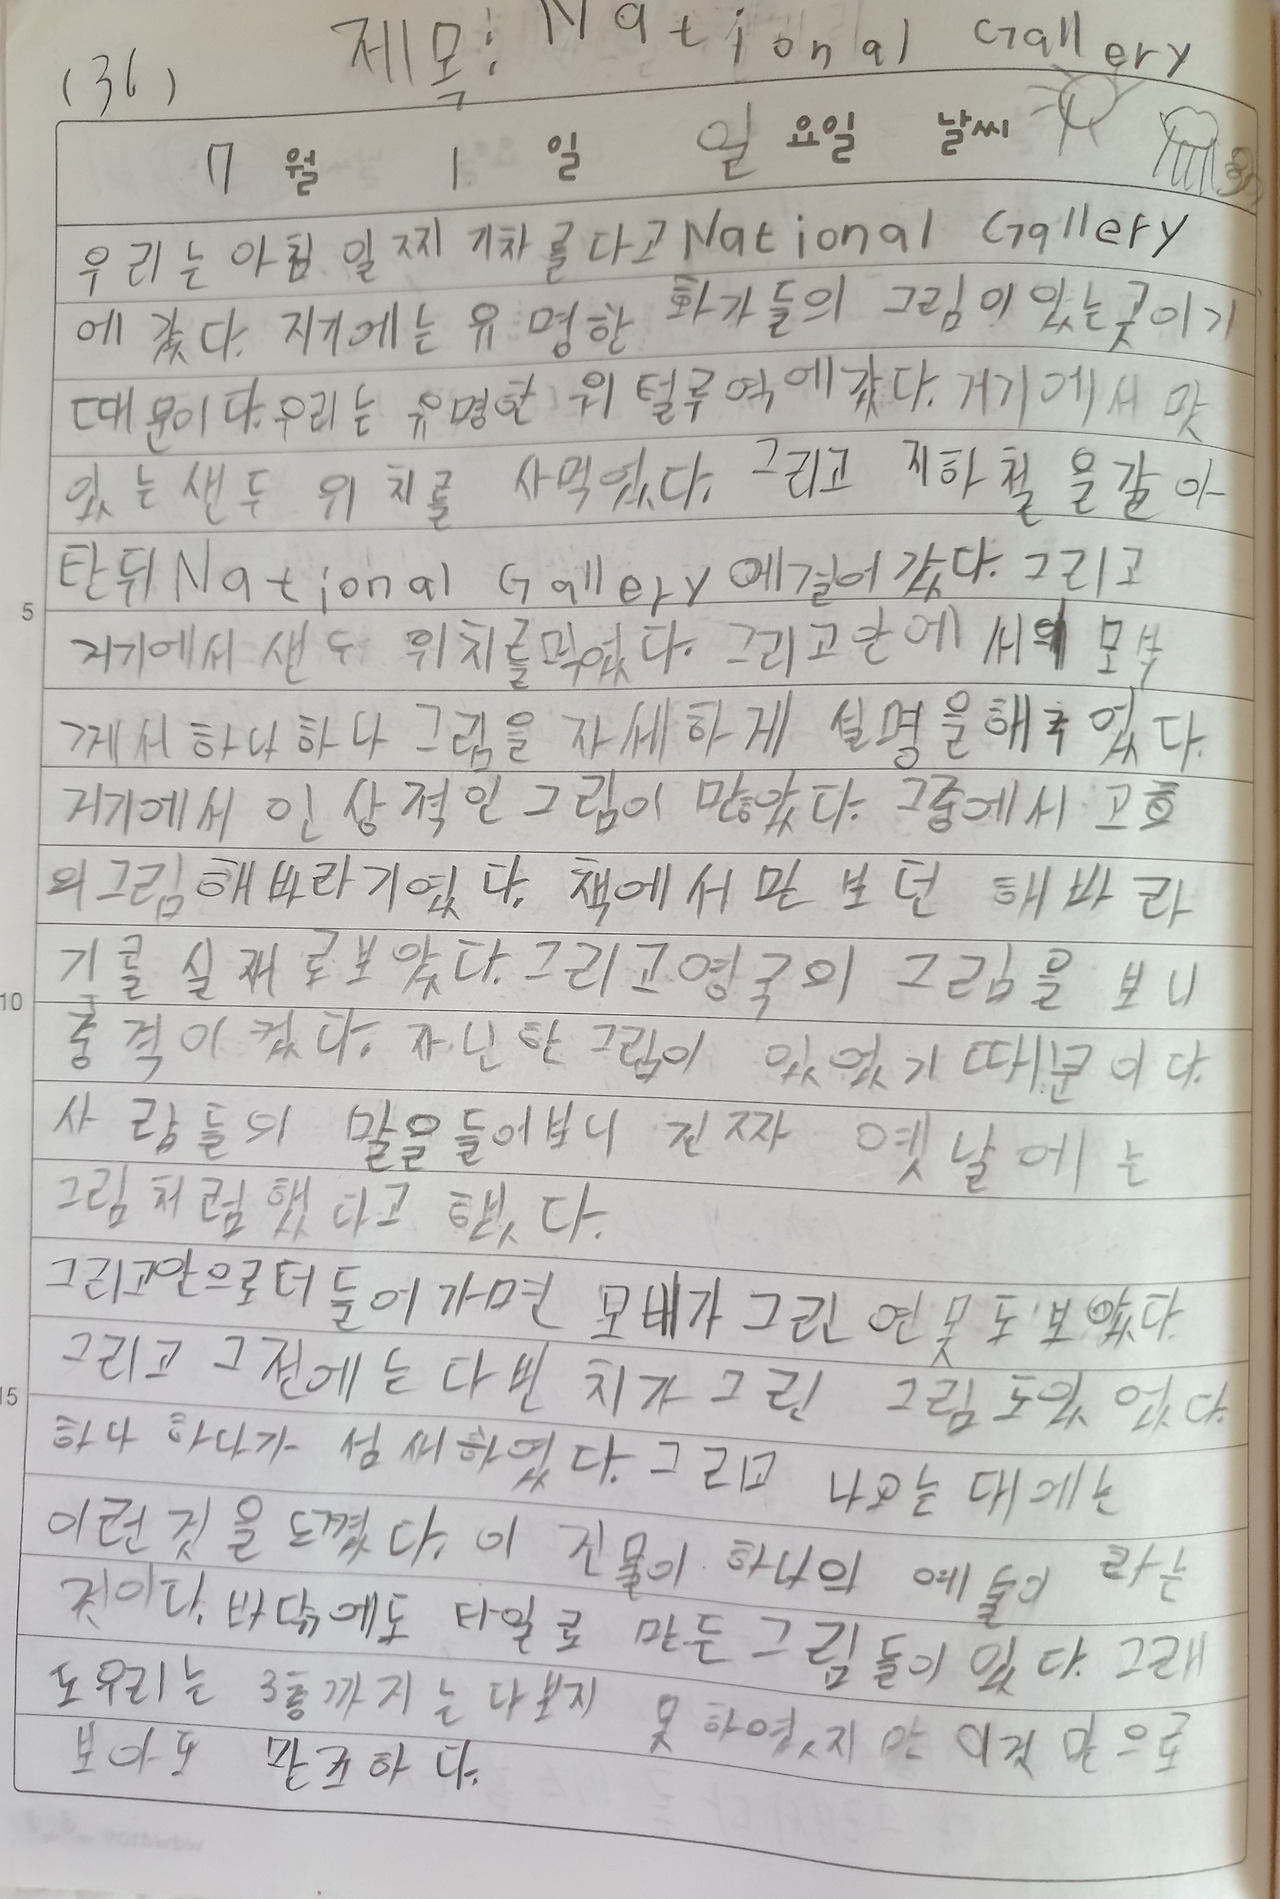 제목: National Gallery
(36)
7월 1일 일요일 날씨
우리는 아침 일찌 기차를 다고 National Gallery
에 갔다. 저기에는 유명한 화가들의 그림이 있는 곳이기
때문이다. 우리는 유명한 워털루역에 갔다. 거기에서 맛
있는 샌두위치를 사먹었다. 그리고 지하철을 갈아
탄뒤 National Gallery 에 걸어 갔다. 그리고
거기에서 샌두위치를 먹었다. 그리고 안에
께서 하나하나 그림을 자세하게 설명을 해주었다.
거기에서 인상적인 그림이 많았다. 그중에서 고흐
의 그림 해바라기였다. 책에서만 보던 해바라
기를 실재로 보았다. 그리고 영국의 그림을 보니
충격이 컸다. 자닌한 그림이 있었기 때문이다
사람들의 말을 들어보니 진짜 옛날에는
그림처럼 했다고 했다.
그리고 안으로 더 들어가면 모네가 그린 연못도 보았다
그리고 그전에는 다빈치가 그린 그림도 있었다.
하나하나가 섬세하였다. 그리고 나오는 대에는
이런 것을 느꼈다. 이 건물이 하나의 예술이라는
것이다. 바닦에도 타일로 만든 그림들이 있다. 그래
도 우리는 3층까지는 다보지 못하였지만 이것만으로
보아도 만조하다.